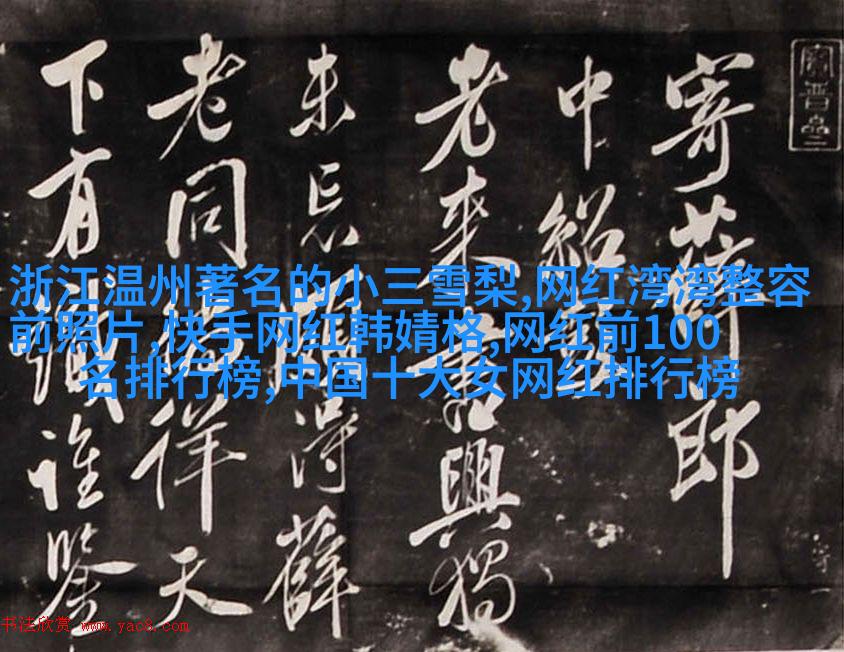 寄薛郎
中紹
老来書興獨
未忘得薛
老同徉天
下有識誰鑒
浙江温州著名的小三雪梨,网红湾湾整容
前照片,快手网红韩婧格,网红前100
名排行榜,中国十大女网红排行榜
书法欣赏 www.yac8.com